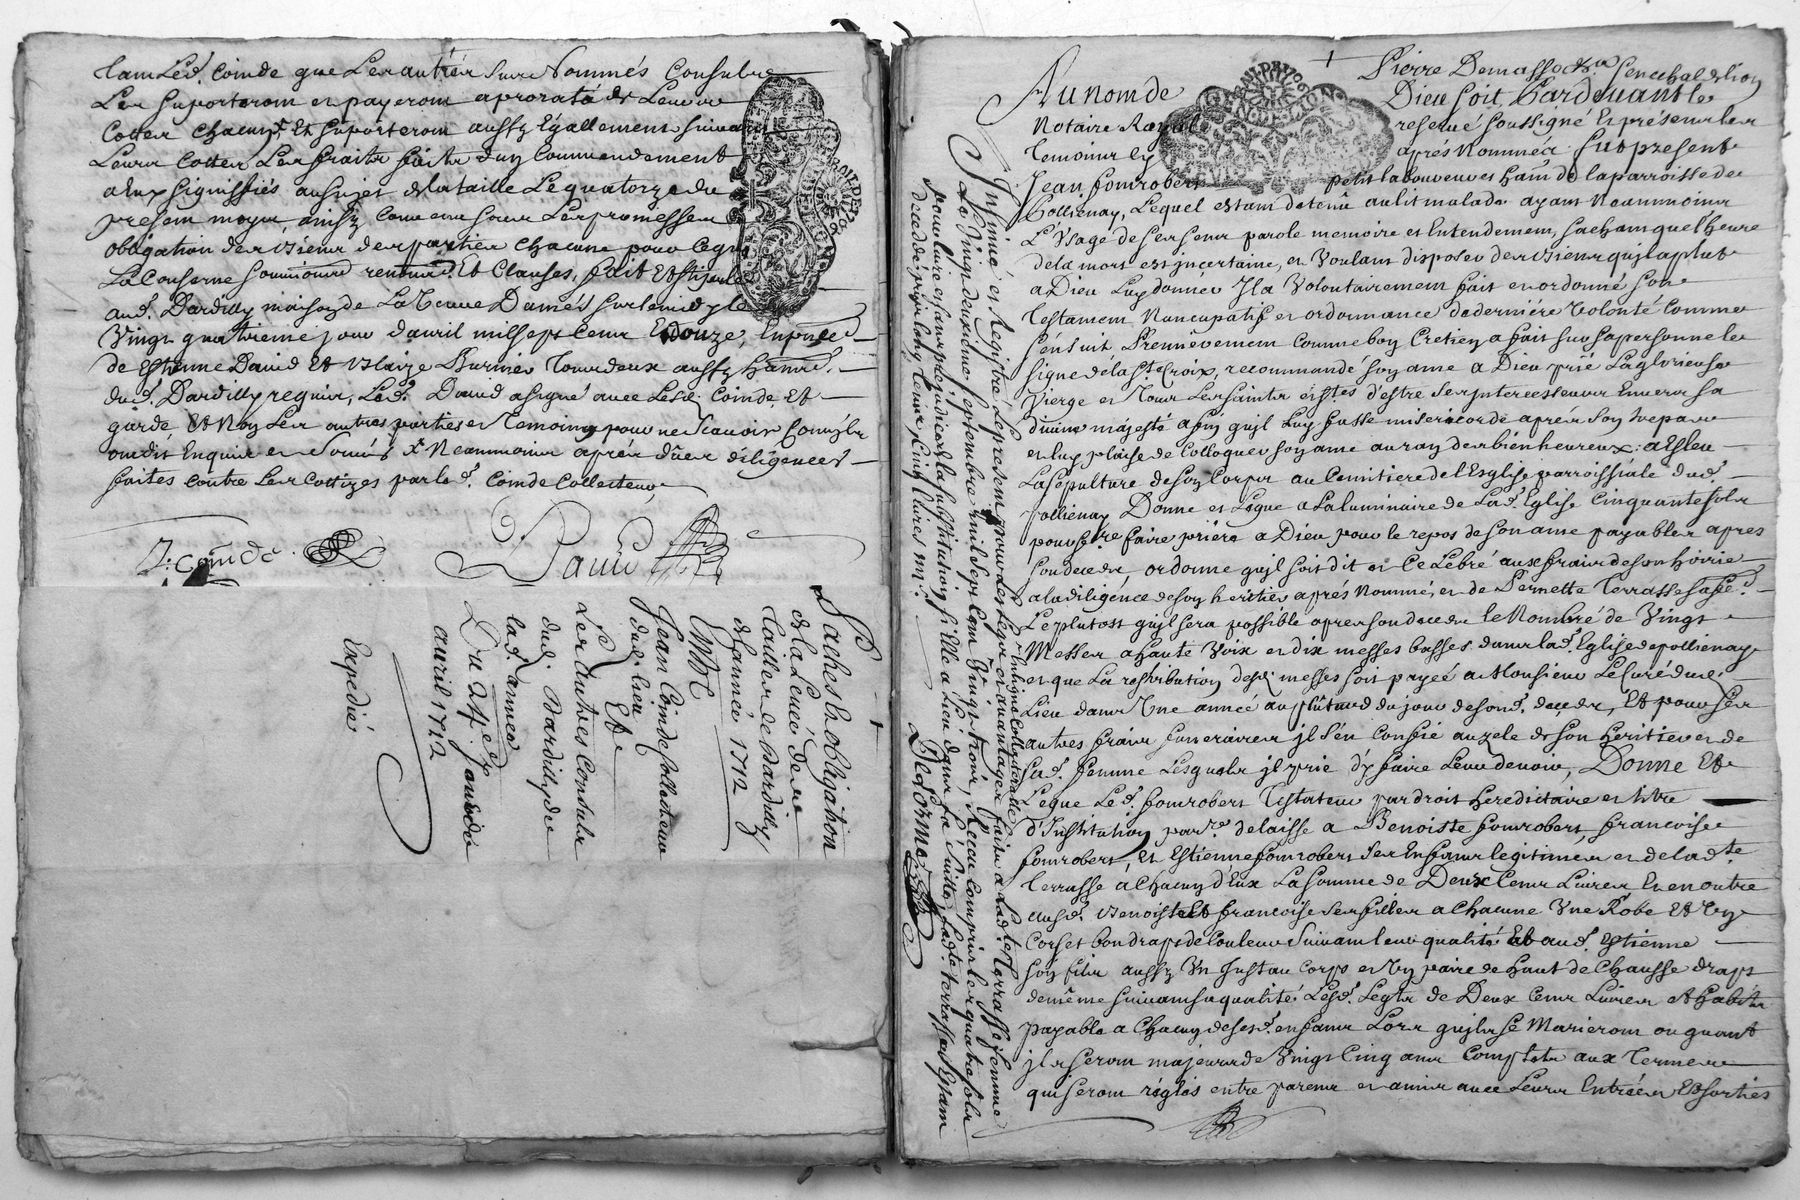 tam Led. Coinde que Les autres sus Nommés Consuls
Les suporteront et payeront a prorata de Leurs
Cottes chacun Et suporteront aussy Egallement suivant
Leurs Cottes Les fraits faits d'un Commendement
a Eux signiffiés au sujet de la taille Le quatorze du
present moyen, ainsy Convenu sous Les promesses
obligation des biens des parties Chacune pour Ce qui
La Conserne soumission renond. Et Clauses, fait Et stipulé
aud. Dardilly maison de La veuve Dumés sur le midy le
Vingt quatrieme jour d'auril mil sept Cent Et douze, En pñce
de Estienne David Et Blaize Burnier tous deux aussy habit.
dud. Dardilly requis, Led. David a signé auec Lesd. Coinde Et
garde Et Non Les autres parties et Temoin pour ne sçauoir Comm'ils
ont dit Enquis et sommés /. Neanmoins aprés dües diligences
faites contre Les Cottizes par led. Coinde Collecteur
J: Coinde
David
Taches h obligation
de la Leuée de la
taille de Dardilly
de l'année 1712
Jean Coinde Collecteur
dud. lieu
Et
Les autres Consuls
dud. Dardilly de
lad. année
Du 24e. jour de
auril 1712
Expedié
Pierre Demassocx Senechal de lion
Au nom de Dieu soit, Pardevant le
Notaire Royal reserué soussigné Et présents les
temoins Ey aprés Nommés fut present
Jean fonrobert petit laboureur hañt de la parroisse de
Pollienay, Lequel estant detenu au lit malade ayant Neanmoins
L'Vsage de ses sens parole memoire et Entendement, sachant que l'heure
de la mort est incertaine, et Voulant disposer des biens qu'il a plut
a Dieu Luy donner Il a Volontairement fait et ordonné son
Testament Nuncupatif et ordonnance de derniére Volonté Comme
s'ensuit Premiérement Comme bon Cretien a fait sur sa personne le
signe de la Ste. Croix, recommandé son ame a Dieu prié La glorieuse
Vierge et Tous Les saints d'estre ses intercesseurs Enuers sa
diuine majesté afin qu'il Luy fasse misericorde aprés son trepas
et luy plaise de Colloquer son ame au rang des bienheureux. a Esleu
La sepulture de son Corps au Cemitiere de l'Esglise parroissiale dud.
pollienay Donne et Légue a La luminaire de Lad. Eglise Cinquante sols
pour fe. re faire priére a Dieu pour le repos de son ame payables aprés
son deced, ordonne qu'il soit dit et Celebré aux frais de son hoirie
a la diligence de son heritier aprés Nommé, et de Pernette Terrasse sa fe.
Le plutost qu'il sera possible apres son deced le Nombre de Vingt
Messes a haute Voix et dix messes basses dans lad. Eglise de pollienay
et que La restribution desd. messes soit payeé a Monsieur Le Curé dud.
Lieu dans Vne année au plûtard du jour de sond. deced, Et pour ses
autres frais funeraires il s'en Confie au zele de son heritier et de
sad. femme Lesquels il prie d'y faire Leur deuoir, Donne Et
Legue Led. fonrobert Testateur par droit hereditaire et titre
d'Institution par.re delaisse a Benoiste fonrobert, francoise
fonrobert, Et Estienne fonrobert ses Enfans legitimes et de lad.te
terrasse á Chacun d'Eux La somme de Deux Cent Liures Et en outre
ausd. Benoiste Et francoise ses filles a Chacune Vne Robe Et Vn
Corset bon drap de Couleur suiuant leur qualité Et aud. Estienne
son fils aussy Vn Justau Corps et Vn paire de haut de Chausse drap
de même suiuant sa qualité Lesd. Legts de Deux Cent Liures Et habits
payable a Chacun de sesd. enfans Lors qu'ils se Marieront ou quant
ils seront majeurs de Vingt Cinq ans Complets aux Termes
qui seront réglés entre parens et amis auec Leurs Entrées Et sorties
Insinué et Registré Le present pour Les legs et auantages faits a Lad.te Terrasse femme
Le Vingt deuxiéme septembre mil sept Cent Vingt trois, Receu Compris les quatre sols
pour liure et sans préjudice de la substitution s'ille a lieu dont sa suitte Lad.te terrasse Estant
decedé six Cinq Liures
Delorme